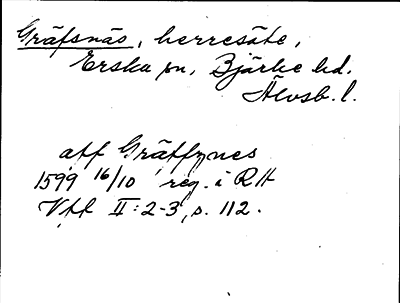 Gräfsnäs, herresäte,
Erska sn, Bjärke hd.
Älvsb. l.
aff Gräffznes
1599 16/10 reg. i RA
Vfl II:2-3, s. 112.